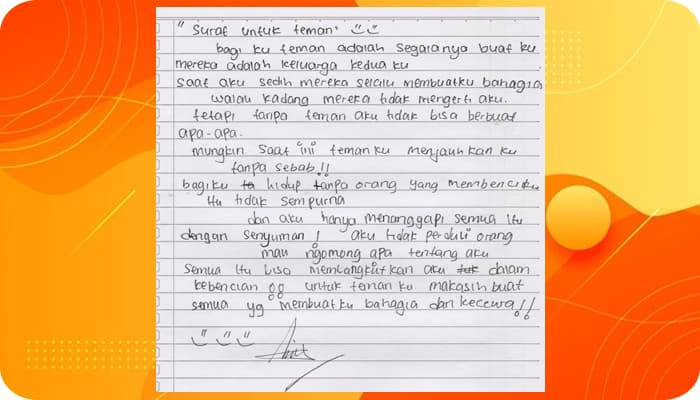 " Surat untuk teman"
bagi ku teman adalah segalanya buat ku
mereka adalah keluarga kedua ku
Saat aku sedih mereka selalu membuatku bahagia
walau kadang mereka tidak mengerti aku.
tetapi tanpa teman aku tidak bisa berbuat
apa-apa.
mungkin saat ini temanku menjauhkan ku
tanpa sebab!!
bagiku hidup tanpa orang yang membenciku
itu tidak sempurna
dan aku hanya menanggapi semua itu
dengan senyuman! aku tidak perduli orang
mau ngomong apa tentang aku
semua itu bisa membangkitkan aku dalam
kebencian untuk teman ku makasih buat
semua yg membuatku bahagia dan kecewa!!